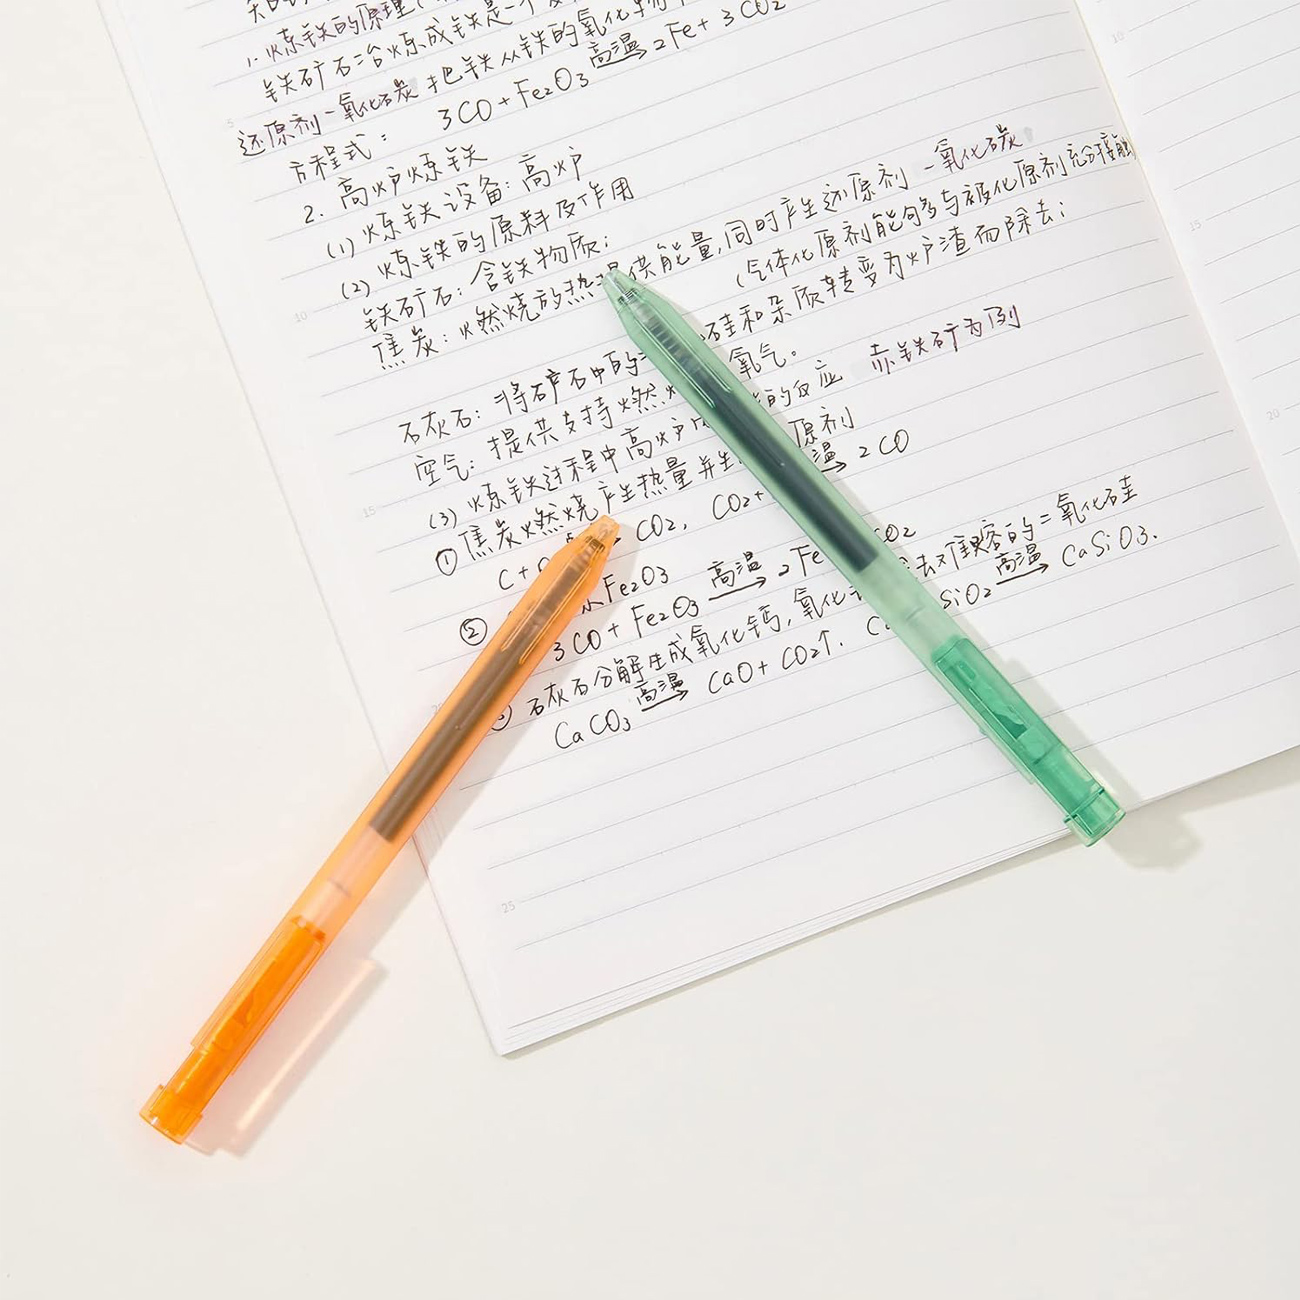 1. 炼铁的原理
铁矿石冶炼成铁是一个
还原剂一氧化碳 把铁从铁的氧化物中
方程式: 3CO+Fe₂O₃ 高温→ 2Fe+3CO₂
2. 高炉炼铁
(1) 炼铁设备:高炉
(2) 炼铁的原料及作用
铁矿石:含铁物质;
焦炭:燃烧放热 供能量,同时产生还原剂 一氧化碳
(气体化原剂能够与被化原剂充分接触)
石灰石:将矿石中的 硅和杂质转变为炉渣而除去;
空气:提供支持燃 氧气。
(3) 炼铁过程中高炉 的反应 赤铁矿为例
① 焦炭燃烧产生热量并生 原剂
C+ CO₂, CO₂+ 温→ 2CO
② Fe₂O₃
3CO+Fe₂O₃ 高温→ 2Fe CO₂
石灰石分解生成氧化钙,氧化 去 的二氧化硅
CaCO₃ 高温→ CaO+CO₂↑. SiO₂ 高温→ CaSiO₃.
5
10
15
25
10
15
20